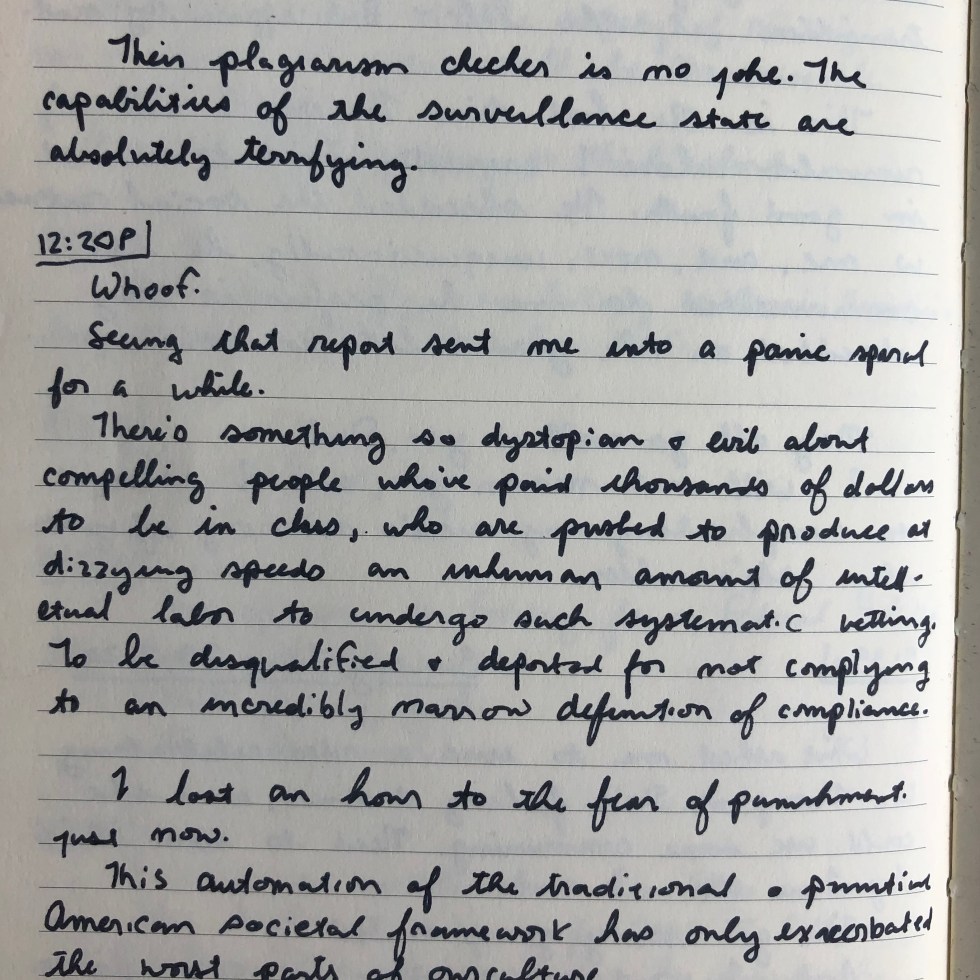 Their plagiarism checker is no joke. The
capabilities of the surveillance state are
absolutely terrifying.
12:20P
Whoof.
Seeing that report sent me into a panic spiral
for a while.
There's something so dystopian & evil about
compelling people who've paid thousands of dollars
to be in class, who are pushed to produce at
dizzying speeds an inhuman amount of intell-
ectual labor to undergo such systematic vetting.
To be disqualified & deported for not complying
to an incredibly narrow definition of compliance.
I lost an hour to the fear of punishment.
just now.
This automation of the traditional & punitive
American societal framework has only exacerbated
the worst parts of our culture